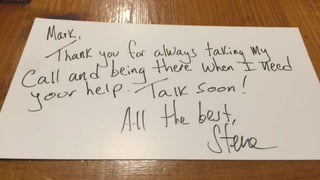 Mark,
Thank you for always taking my
Call and being there when I need
your help. Talk soon!
All the best,
Steve